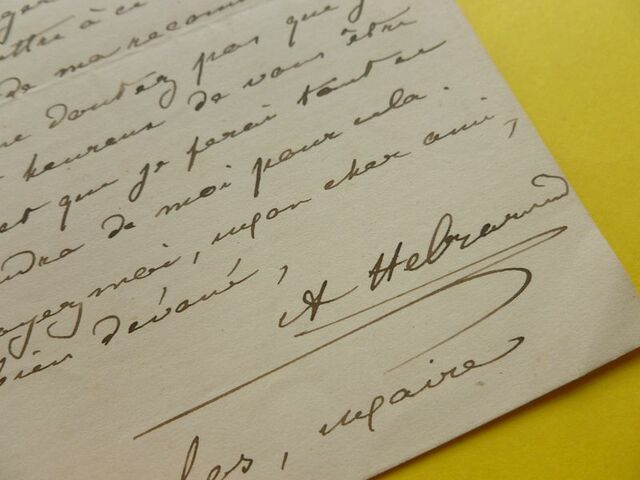 ettre à ce
de ma recom
ne doutez pas que j
heureux de vous être
et que je ferai tout ce
ndra de moi pour cela.
oyez moi, mon cher ami,
bien dévoué,
A Hébrard
les, maire